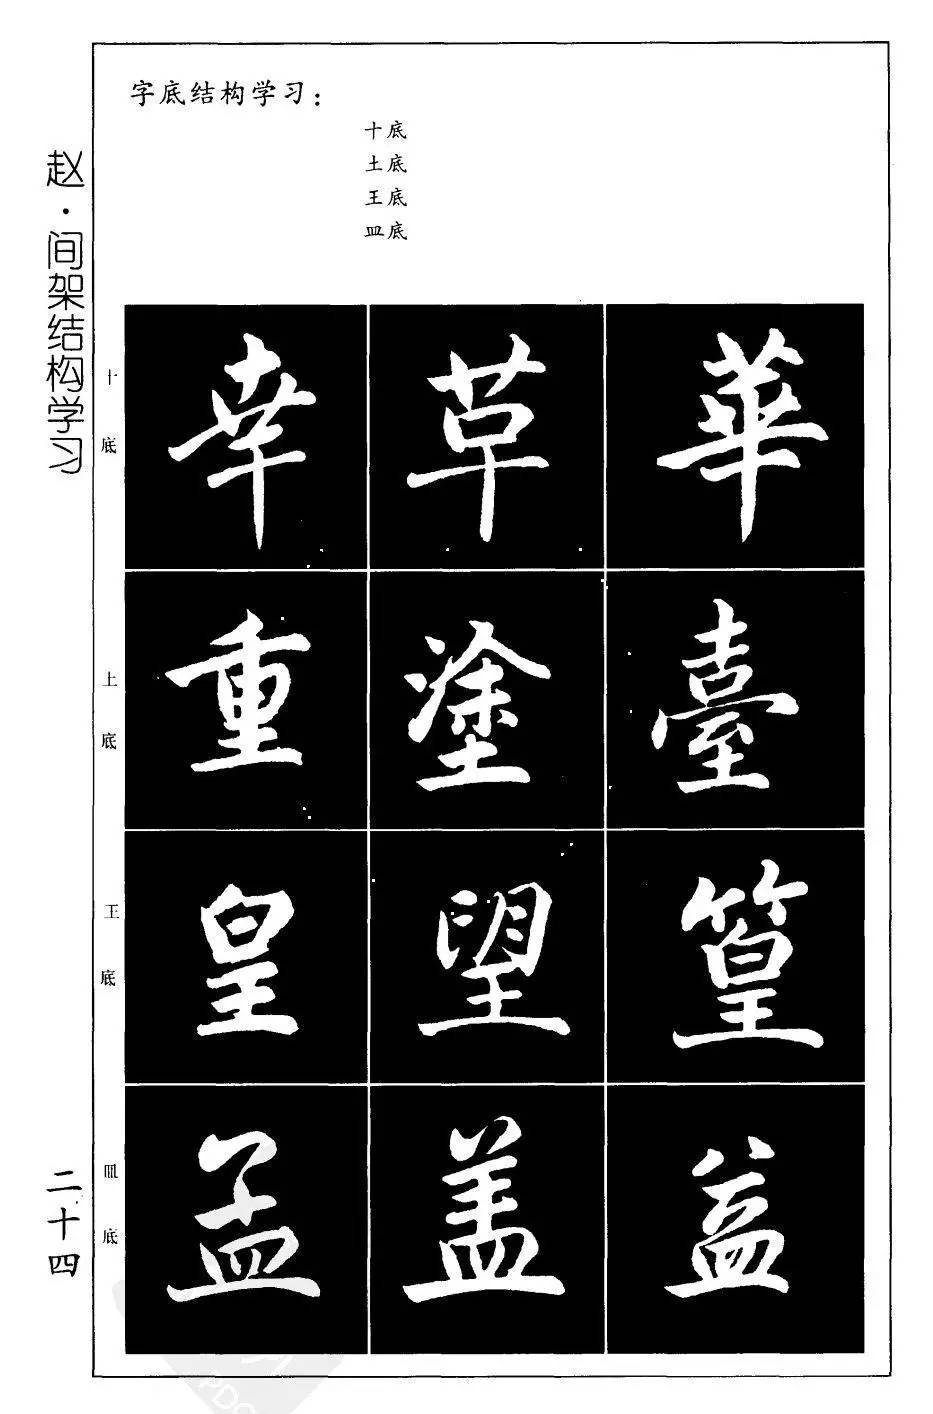 字底结构学习：
十底
土底
王底
皿底
赵·间架结构学习
十底
幸草華
土底
重塗臺
王底
皇望篁
皿底
孟盖益
二十四